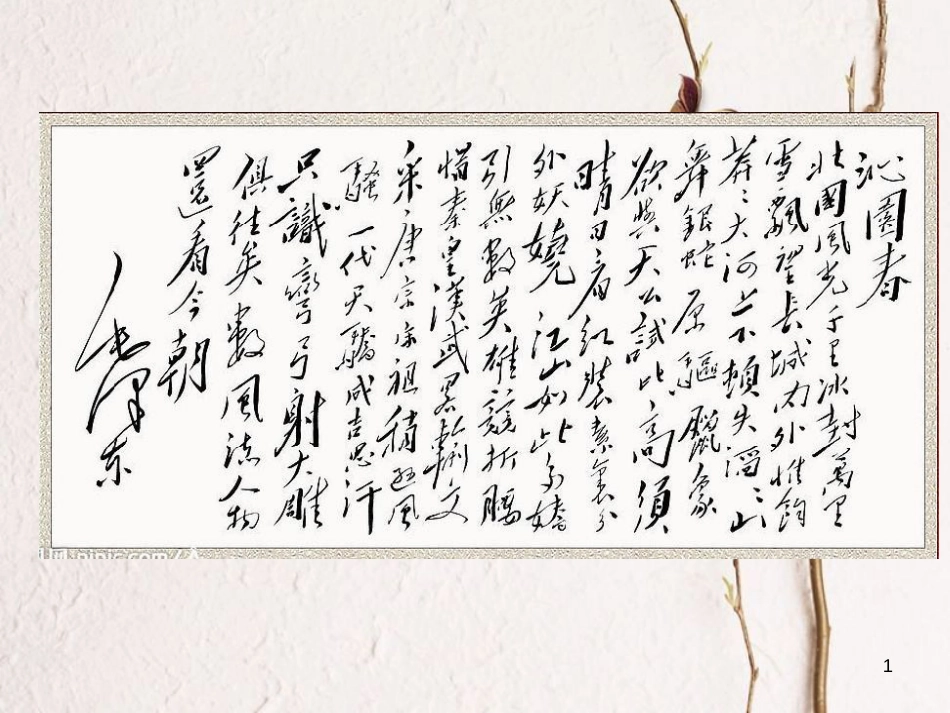 沁園春
北國風光千里冰封萬里
雪飄望長城内外惟餘
莽〻大河上下頓失滔〻山
舞銀蛇原驅臘象
欲與天公試比高須
晴日看紅裝素裹分
外妖嬈江山如此多嬌
引無數英雄競折腰
惜秦皇漢武畧輸文
采唐宗宋祖稍遜風
騷一代天驕成吉思汗
只識彎弓射大雕
俱往矣數風流人物
還看今朝
毛澤東
nipic.com
1